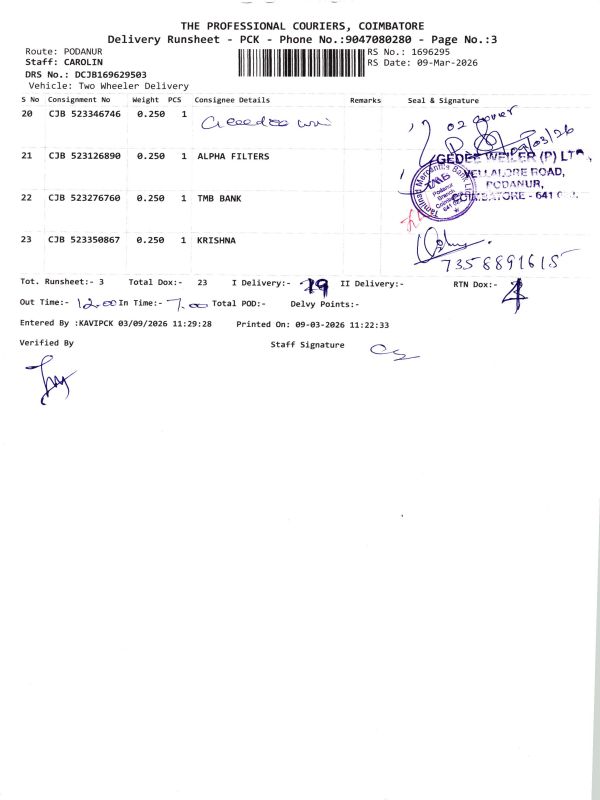 THE PROFESSIONAL COURIERS, COIMBATORE
Delivery Runsheet - PCK - Phone No.:9047080280 - Page No.:3
Route: PODANUR
RS No.: 1696295
Staff: CAROLIN
RS Date: 09-Mar-2026
DRS No.: DCJB169629503
Vehicle: Two Wheeler Delivery
S No Consignment No Weight PCS Consignee Details Remarks Seal & Signature
20 CJB 523346746 0.250 1
02 cover
09/03/26
21 CJB 523126890 0.250 1 ALPHA FILTERS
GEDEE WEILER (P) LTD.,
VELLALORE ROAD,
PODANUR,
COIMBATORE - 641 023.
22 CJB 523276760 0.250 1 TMB BANK
Tamilnad Mercantile Bank Ltd
TMB
Podanur
Branch
Coimbatore
641 023
23 CJB 523350867 0.250 1 KRISHNA
7358891615
Tot. Runsheet:- 3 Total Dox:- 23 I Delivery:- 19 II Delivery:- RTN Dox:- 4
Out Time:- 12.00 In Time:- 7.00 Total POD:- Delvy Points:-
Entered By :KAVIPCK 03/09/2026 11:29:28 Printed On: 09-03-2026 11:22:33
Verified By Staff Signature